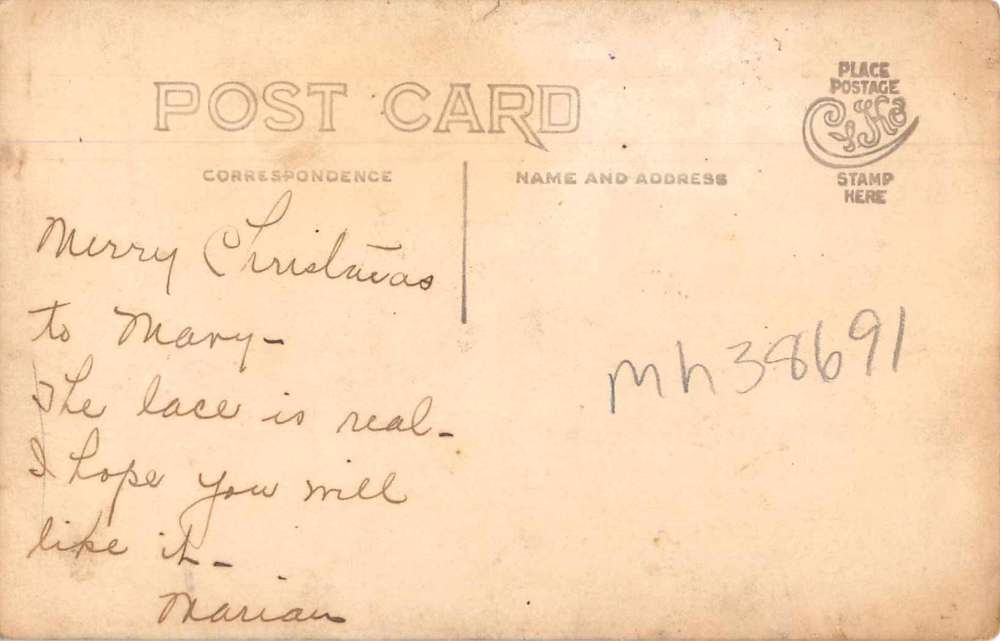 POST CARD
PLACE
POSTAGE
STAMP
HERE
CORRESPONDENCE
NAME AND ADDRESS
Merry Christmas
to Mary-
The lace is real-
I hope you will
like it-
Marian
mh38691